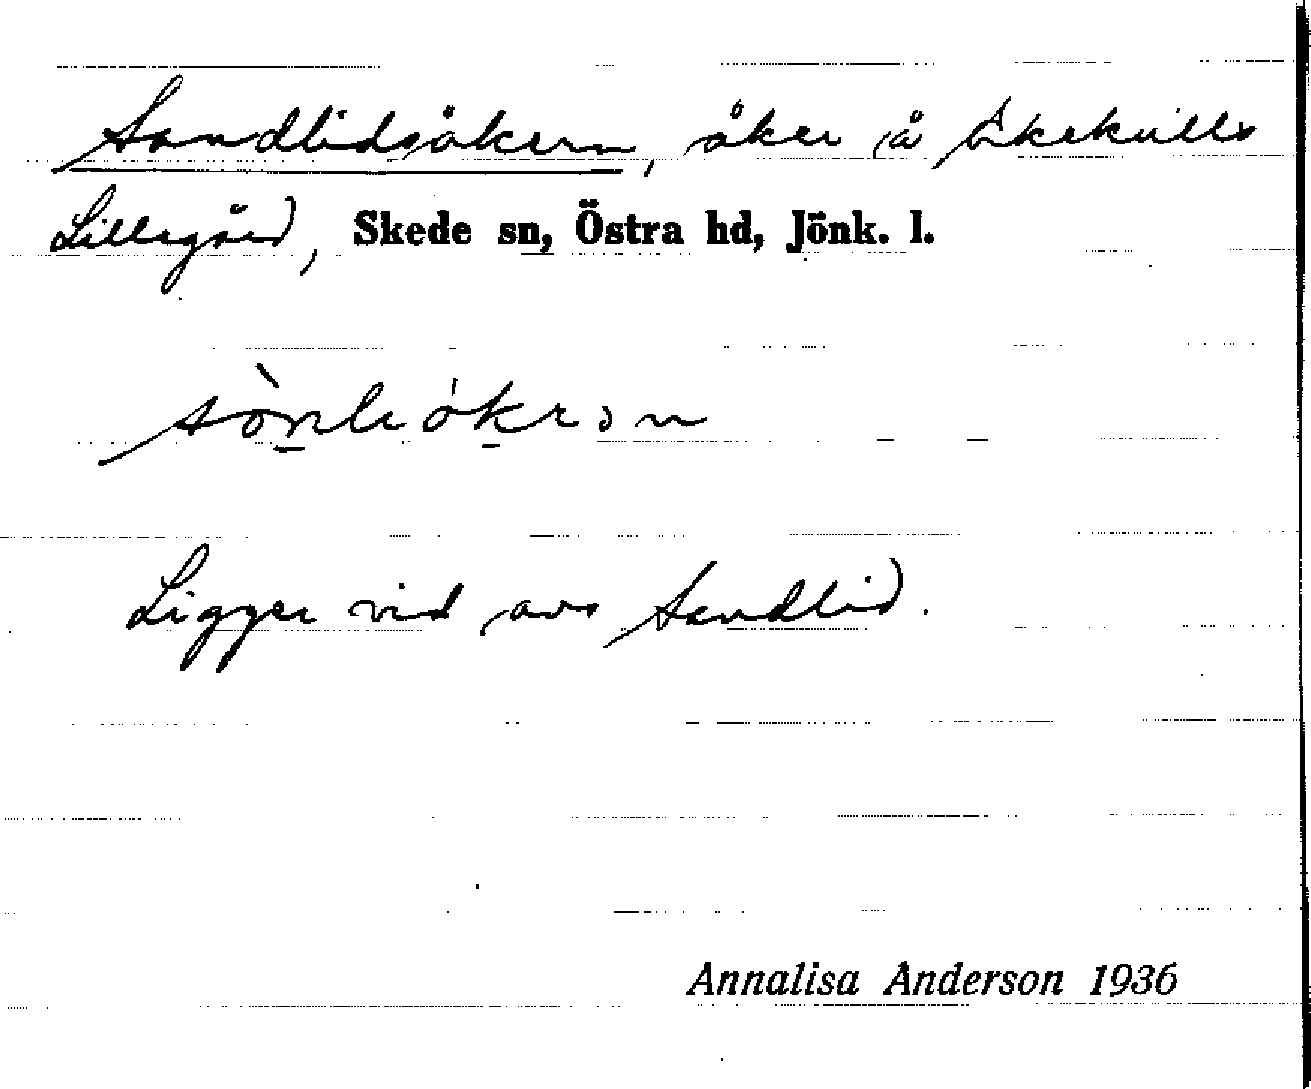 Sandlidsåkern, åker å Ekekulls
Lillegård, Skede sn, Östra hd, Jönk. l.
Ligger vid avs Sandlid.
Annalisa Anderson 1936